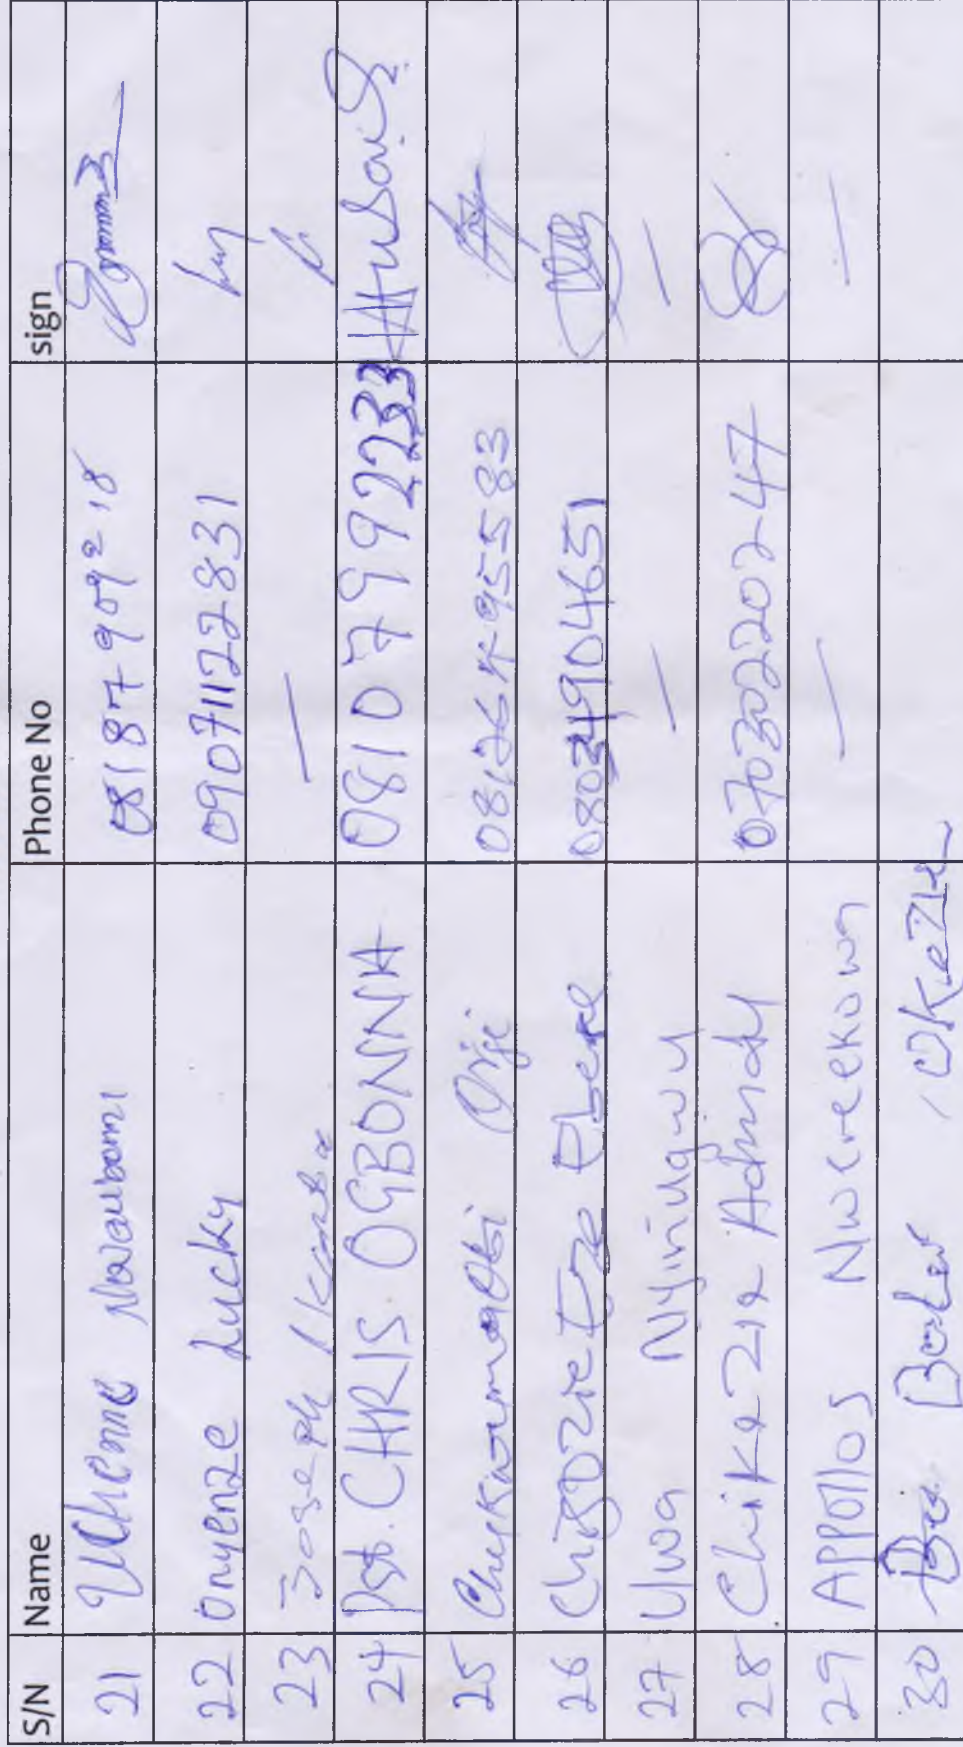 S/N Name Phone No sign
21 Uchenna Nwaubani 08187909218
22 Onyenze Lucky 09071122831
23 Joseph Ikonta —
24 Pst. CHRIS OGBONNA 08107992233
25 Chukwumaobi Orji 08126495583
26 Chigozie Eze Ebere 08034904651
27 Uwa NYjinugwu — —
28 Chikezie Admdy 07030220247
29 APPOllos Nwcreekown — —
30 Okezie